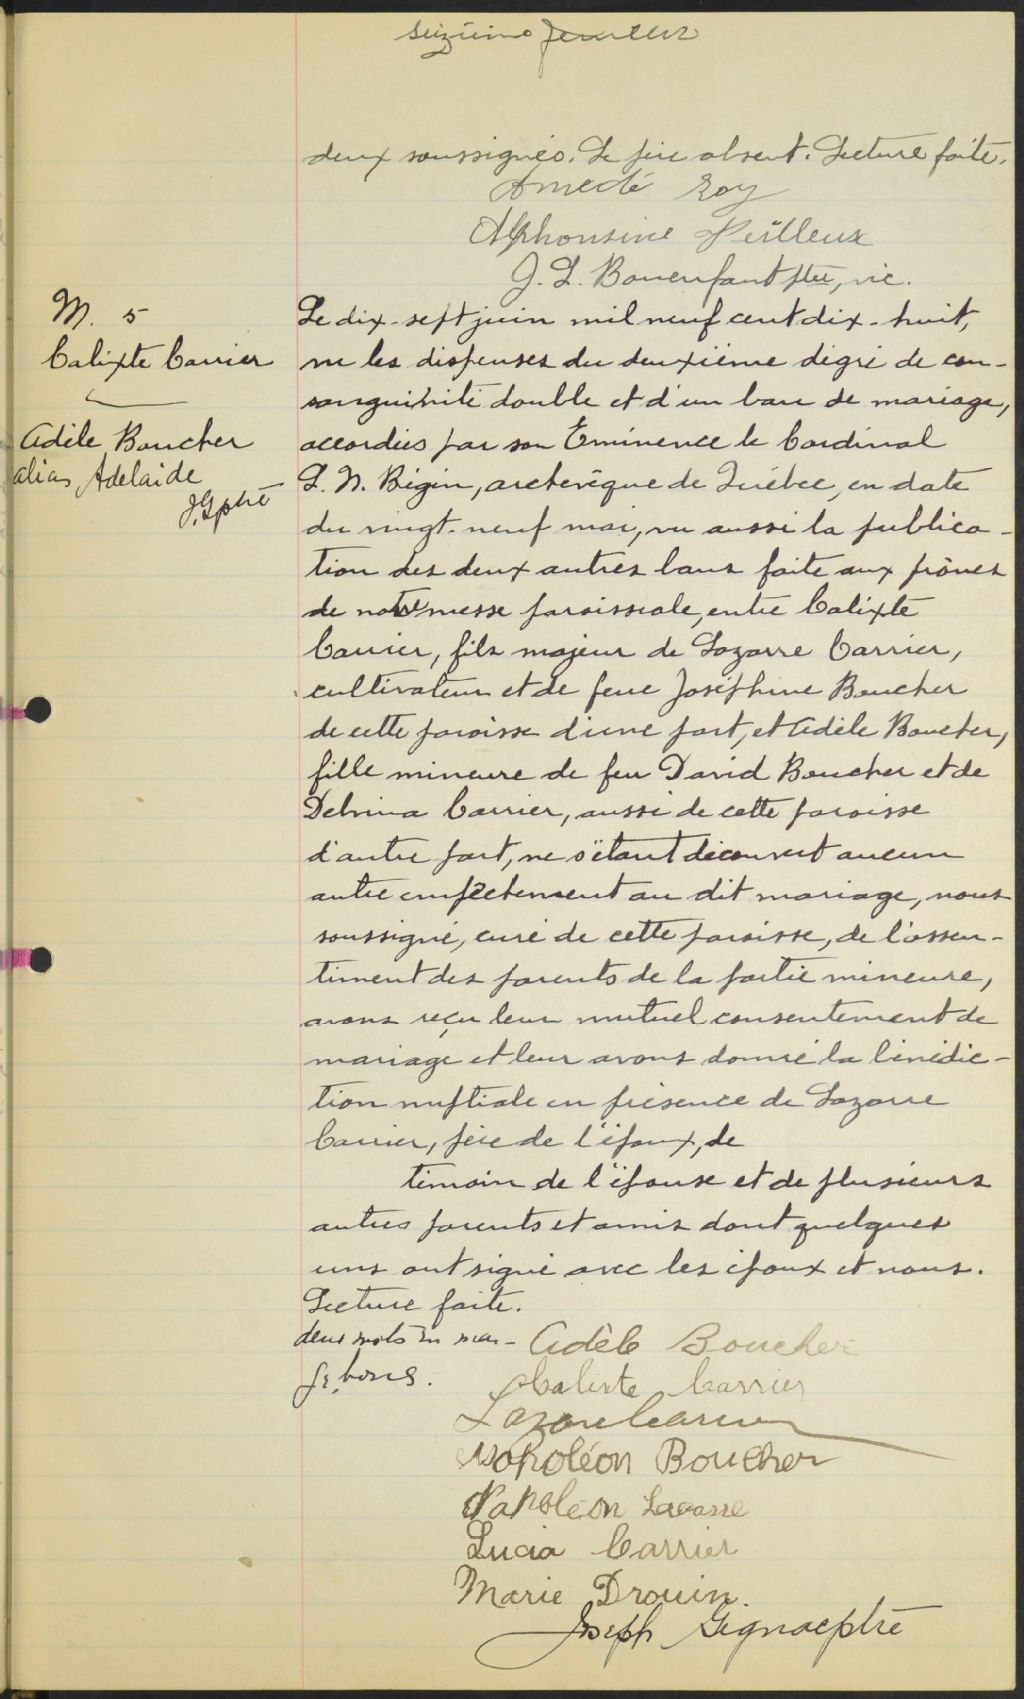 Seizième feuillet
deux soussignés. Le père absent. Lecture faite.
Amedé Roy
Alphonsine Veilleux
J. L. Bonenfant ptre, vic.
M. 5
Calixte Carrier
Adèle Boucher
alias Adelaide
J.G ptre
Le dix-sept juin mil neuf cent dix-huit,
vu les dispenses du deuxième degré de con-
sanguinité double et d'un ban de mariage,
accordées par son Eminence le Cardinal
L. N. Bégin, archevêque de Québec, en date
du vingt-neuf mai, vu aussi la publica-
tion des deux autres bans faite aux prônes
de notre messe paroissiale, entre Calixte
Carrier, fils majeur de Lazarre Carrier,
cultivateur et de feue Joséphine Boucher
de cette paroisse d'une part, et Adèle Boucher,
fille mineure de feu David Boucher et de
Delvina Carrier, aussi de cette paroisse
d'autre part, ne s'étant découvert aucun
autre empêchement au dit mariage, nous
soussigné, curé de cette paroisse, de l'assen-
timent des parents de la partie mineure,
avons reçu leur mutuel consentement de
mariage et leur avons donné la bénédic-
tion nuptiale en présence de Lazarre
Carrier, père de l'époux, de
témoin de l'épouse et de plusieurs
autres parents et amis dont quelques
uns ont signé avec les époux et nous.
Lecture faite.
deux mots en mar-
ge, bons.
Adèle Boucher
Calixte Carrier
Lazare Carrier
Napoléon Boucher
Napoléon Lacasse
Lucia Carrier
Marie Drouin.
Joseph Gignac ptre